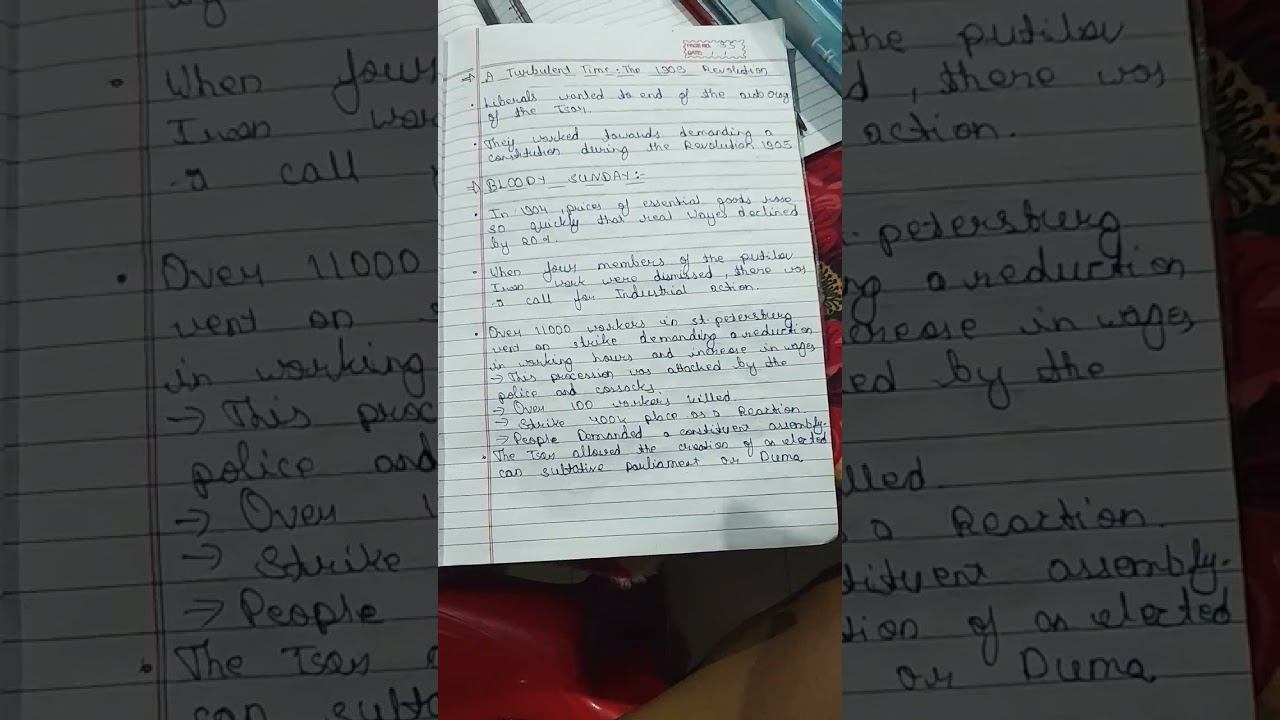 PAGE NO. 35
DATE
→ A Turbulent Time : The 1905 Revolution
• Liberals wanted to end of the
of the Tsar.
• They worked towards demanding a
constitution during the Revolution 1905
→ BLOODY SUNDAY:-
• In 1904, prices of essential goods rose
so quickly that real wages declined
by 20%.
• When four members of the putilov
Iron work were dismissed, there was
a call for Industrial action.
• Over 11000 workers in st petersburg
went on strike demanding a reduction
in working hours and increase in wages
→ This procession was attacked by the
police and cossacks
→ Over 100 workers killed
→ Strike took place as a Reaction
→ People Demanded a constituent assembly.
• The Tsar allowed the creation of an elected
can subtative parliament or Duma